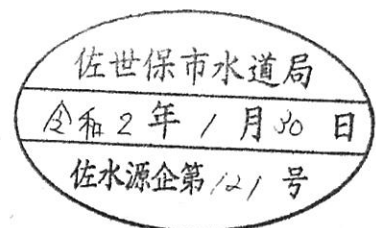 佐世保市水道局
令和2年1月30日
佐水源企第121号